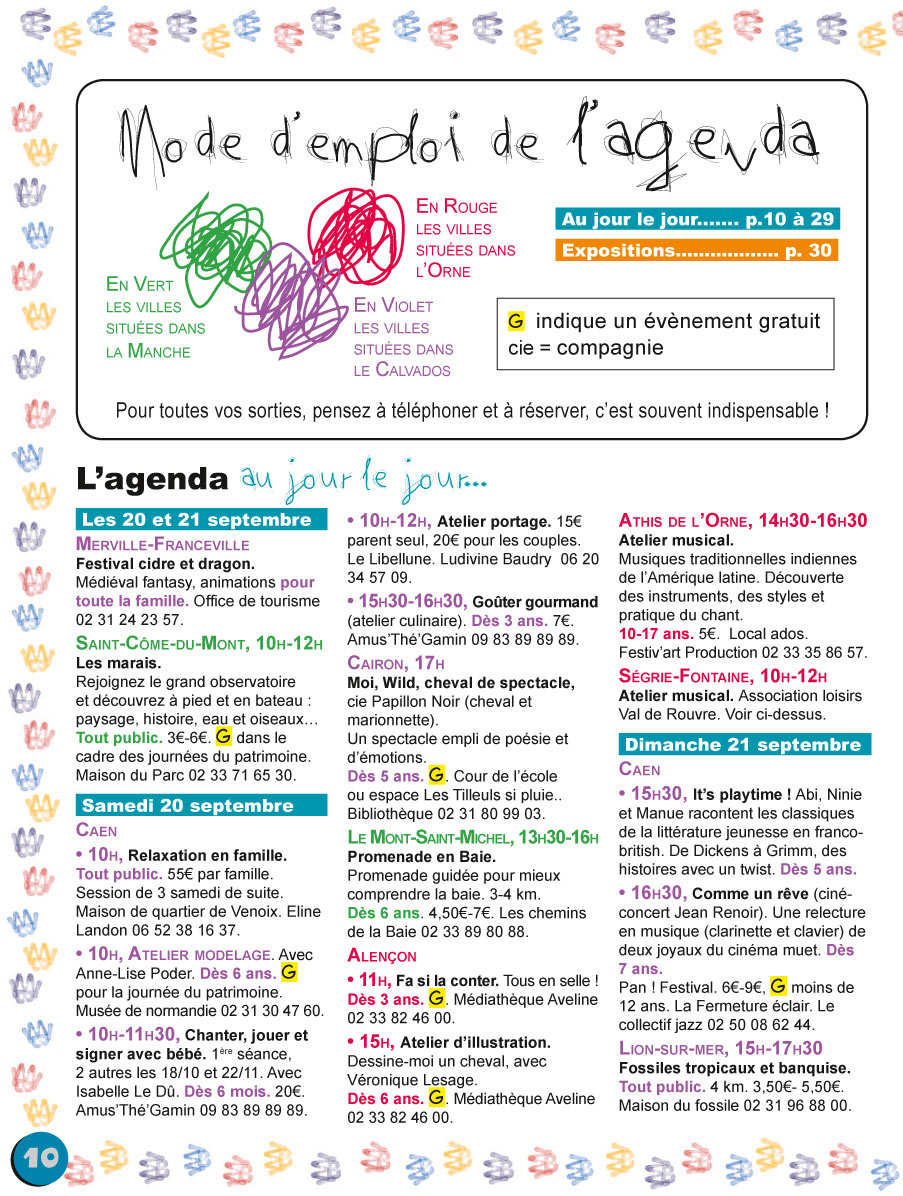 Mode d'emploi de l'agenda
En Rouge
les villes
situées dans
l'Orne
En Vert
les villes
situées dans
la Manche
En Violet
les villes
situées dans
le Calvados
Au jour le jour....... p.10 à 29
Expositions.................. p. 30
G indique un évènement gratuit
cie = compagnie
Pour toutes vos sorties, pensez à téléphoner et à réserver, c'est souvent indispensable !
L'agenda au jour le jour...
Les 20 et 21 septembre
Merville-Franceville
Festival cidre et dragon.
Médiéval fantasy, animations pour
toute la famille. Office de tourisme
02 31 24 23 57.
Saint-Côme-du-Mont, 10h-12h
Les marais.
Rejoignez le grand observatoire
et découvrez à pied et en bateau :
paysage, histoire, eau et oiseaux…
Tout public. 3€-6€. G dans le
cadre des journées du patrimoine.
Maison du Parc 02 33 71 65 30.
Samedi 20 septembre
Caen
• 10h, Relaxation en famille.
Tout public. 55€ par famille.
Session de 3 samedi de suite.
Maison de quartier de Venoix. Eline
Landon 06 52 38 16 37.
• 10h, Atelier modelage. Avec
Anne-Lise Poder. Dès 6 ans. G
pour la journée du patrimoine.
Musée de normandie 02 31 30 47 60.
• 10h-11h30, Chanter, jouer et
signer avec bébé. 1ère séance,
2 autres les 18/10 et 22/11. Avec
Isabelle Le Dû. Dès 6 mois. 20€.
Amus'Thé'Gamin 09 83 89 89 89.
• 10h-12h, Atelier portage. 15€
parent seul, 20€ pour les couples.
Le Libellune. Ludivine Baudry  06 20
34 57 09.
• 15h30-16h30, Goûter gourmand
(atelier culinaire). Dès 3 ans. 7€.
Amus'Thé'Gamin 09 83 89 89 89.
Cairon, 17h
Moi, Wild, cheval de spectacle,
cie Papillon Noir (cheval et
marionnette).
Un spectacle empli de poésie et
d'émotions.
Dès 5 ans. G. Cour de l'école
ou espace Les Tilleuls si pluie..
Bibliothèque 02 31 80 99 03.
Le Mont-Saint-Michel, 13h30-16h
Promenade en Baie.
Promenade guidée pour mieux
comprendre la baie. 3-4 km.
Dès 6 ans. 4,50€-7€. Les chemins
de la Baie 02 33 89 80 88.
Alençon
• 11h, Fa si la conter. Tous en selle !
Dès 3 ans. G. Médiathèque Aveline
02 33 82 46 00.
• 15h, Atelier d'illustration.
Dessine-moi un cheval, avec
Véronique Lesage.
Dès 6 ans. G. Médiathèque Aveline
02 33 82 46 00.
Athis de l'Orne, 14h30-16h30
Atelier musical.
Musiques traditionnelles indiennes
de l'Amérique latine. Découverte
des instruments, des styles et
pratique du chant.
10-17 ans. 5€.  Local ados.
Festiv'art Production 02 33 35 86 57.
Ségrie-Fontaine, 10h-12h
Atelier musical. Association loisirs
Val de Rouvre. Voir ci-dessus.
Dimanche 21 septembre
Caen
• 15h30, It's playtime ! Abi, Ninie
et Manue racontent les classiques
de la littérature jeunesse en franco-
british. De Dickens à Grimm, des
histoires avec un twist. Dès 5 ans.
• 16h30, Comme un rêve (ciné-
concert Jean Renoir). Une relecture
en musique (clarinette et clavier) de
deux joyaux du cinéma muet. Dès
7 ans.
Pan ! Festival. 6€-9€, G moins de
12 ans. La Fermeture éclair. Le
collectif jazz 02 50 08 62 44.
Lion-sur-mer, 15h-17h30
Fossiles tropicaux et banquise.
Tout public. 4 km. 3,50€- 5,50€.
Maison du fossile 02 31 96 88 00.
10